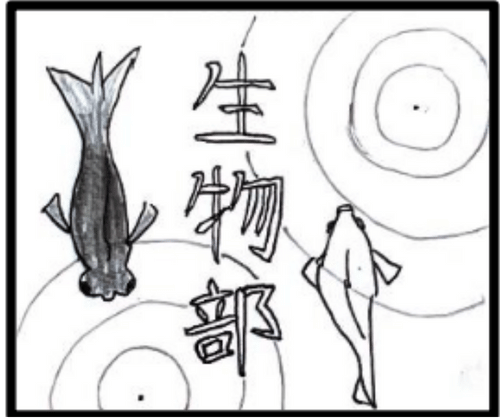 生物部